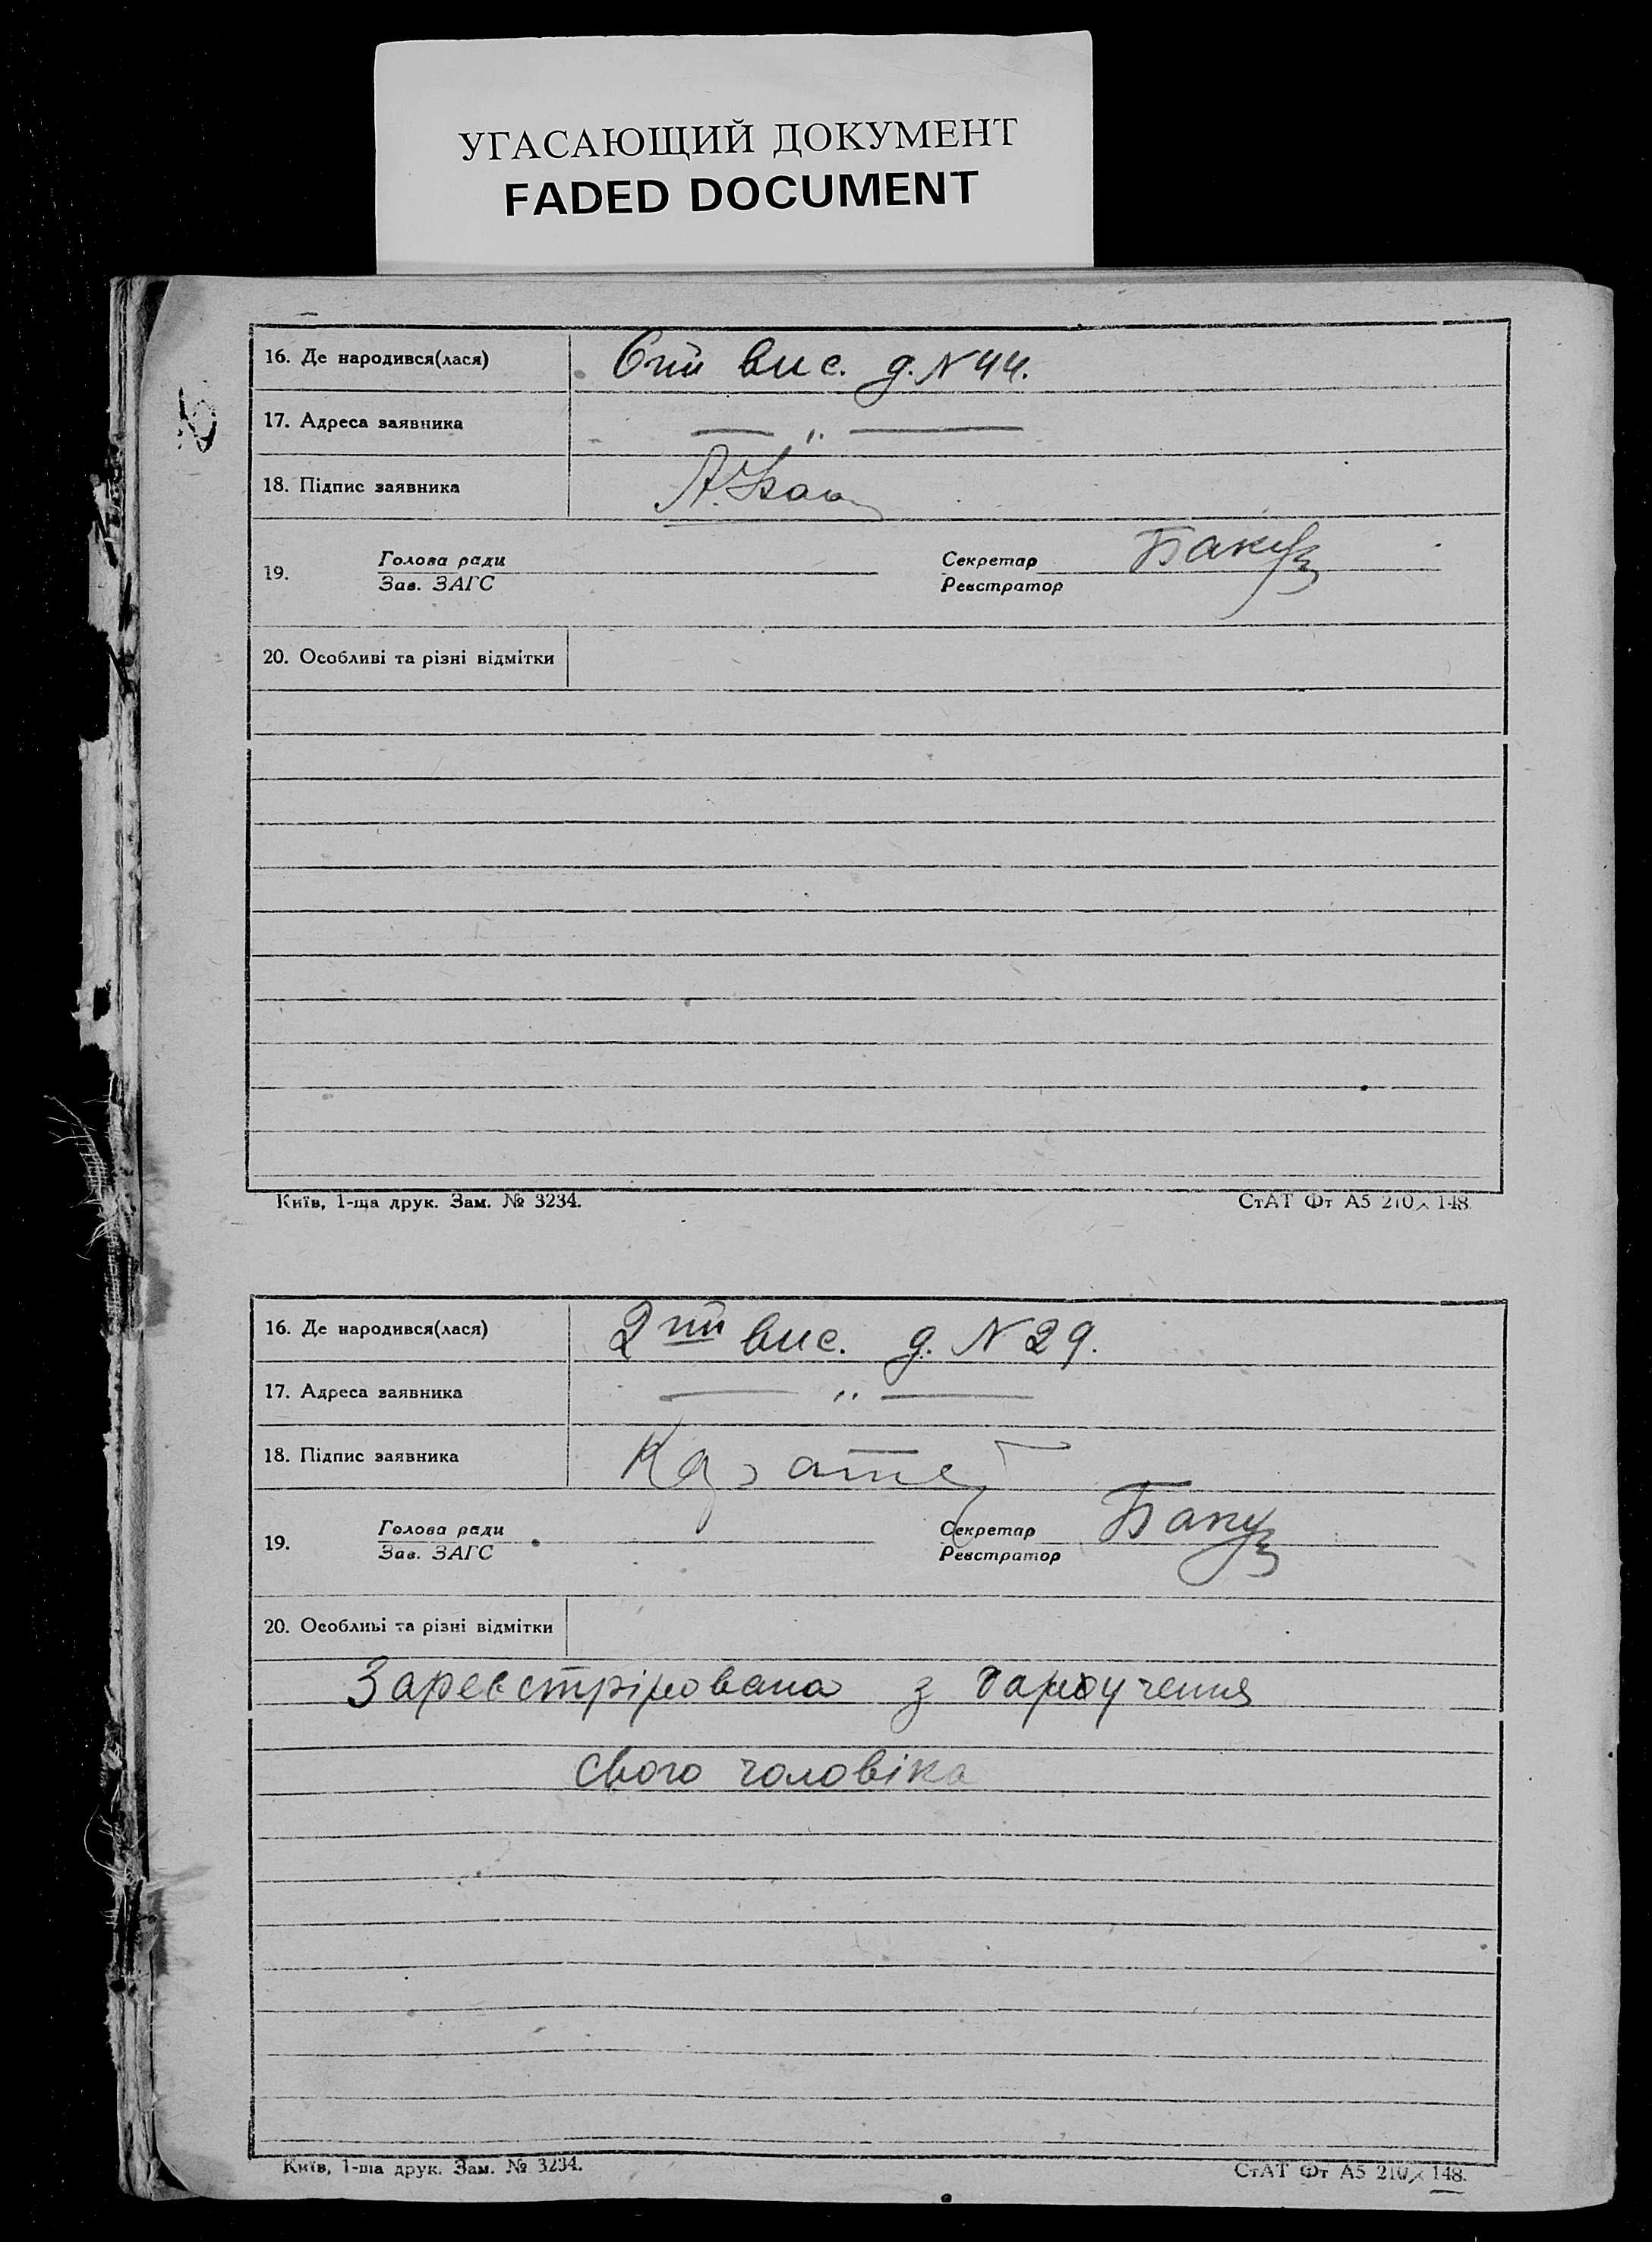 УГАСАЮЩИЙ ДОКУМЕНТ
FADED DOCUMENT
16. Де народився(лася) 6тй вис. д. N 44.
17. Адреса заявника — " —
18. Підпис заявника
19. Голова ради Секретар
Зав. ЗАГС Реєстратор
20. Особливі та різні відмітки
Київ, 1-ша друк. Зам. № 3234. СтАТ Фт А5 210×148.
16. Де народився(лася) 2тй вис. д. N 29.
17. Адреса заявника — " —
18. Підпис заявника
19. Голова ради Секретар
Зав. ЗАГС Реєстратор
20. Особливі та різні відмітки
Зареєстрірована з
свого чоловіка
Київ, 1-ша друк. Зам. № 3234. СтАТ Фт А5 210×148.